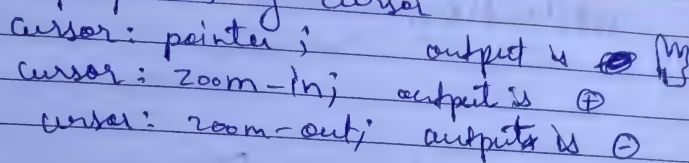 cursor
cursor: pointer; output is
cursor: zoom-in; output is ⊕
cursor: zoom-out; output is ⊖